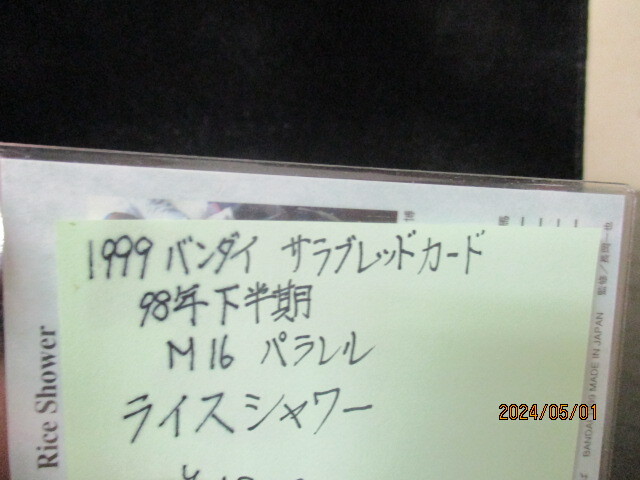 1999 バンダイ サラブレッドカード
98年下半期
M16 パラレル
ライスシャワー
Rice Shower
MADE IN JAPAN
2024/05/01